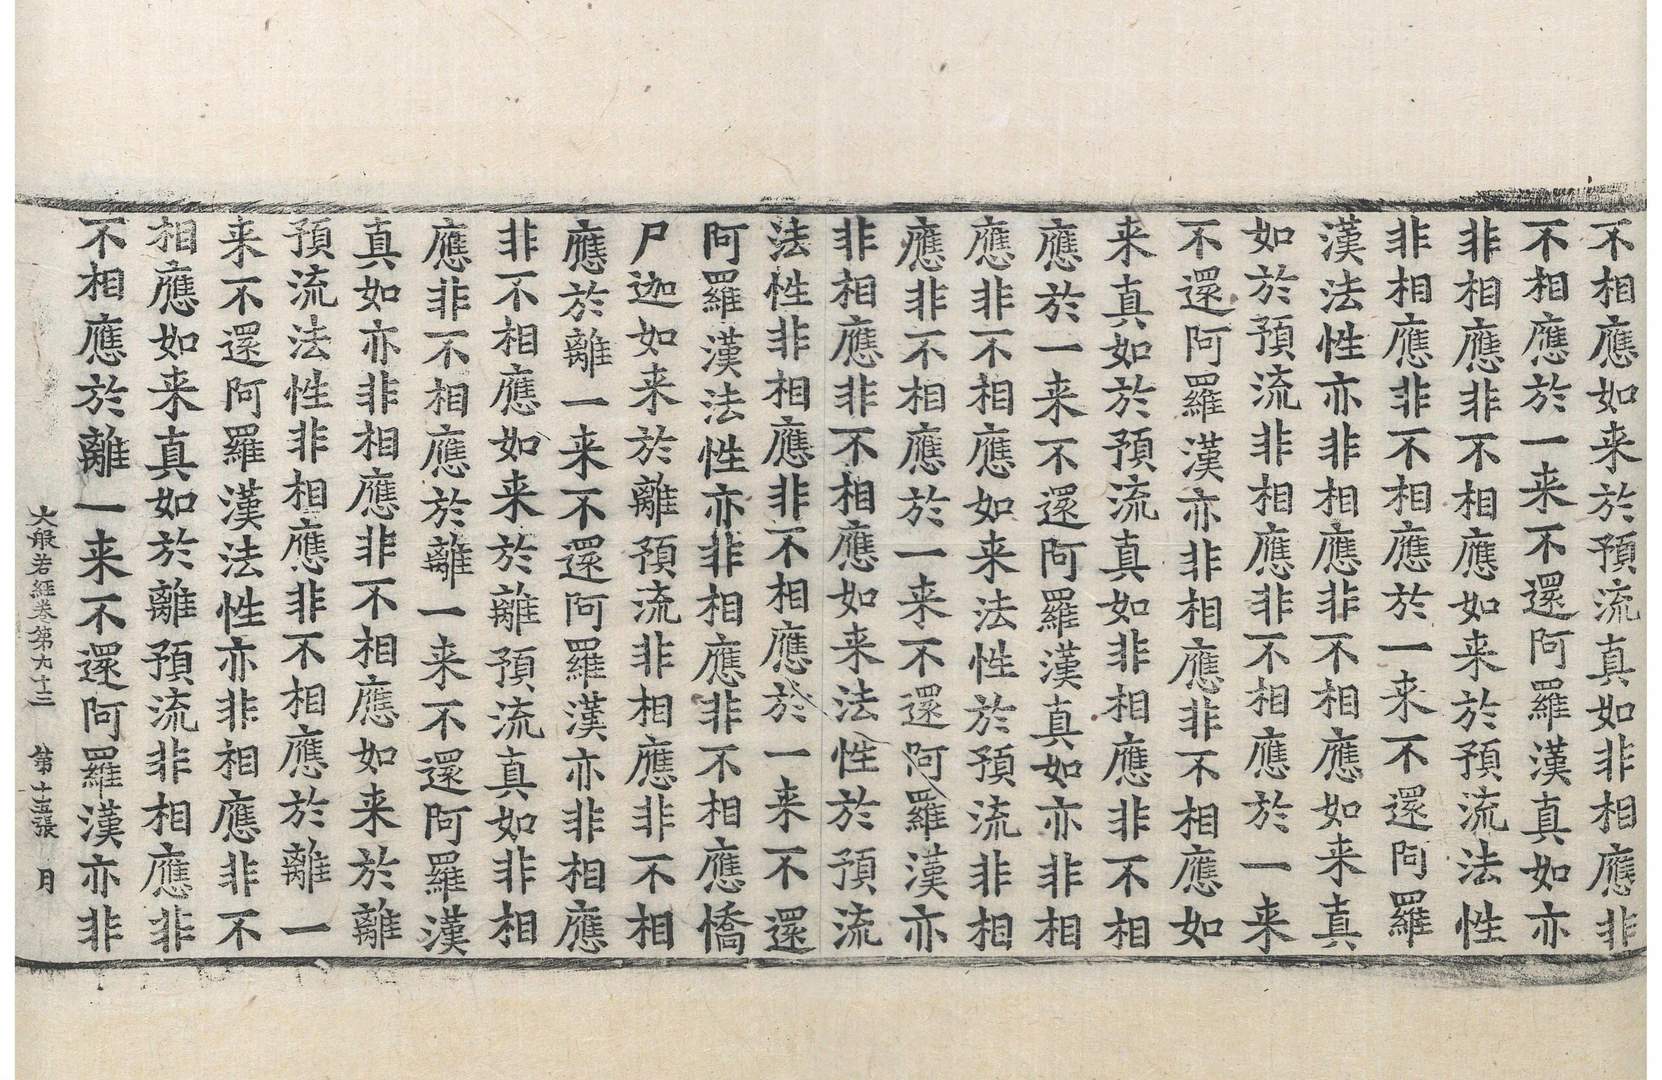 不相應如来於預流真如非相應非
不相應於一来不還阿羅漢真如亦
非相應非不相應如来於預流法性
非相應非不相應於一来不還阿羅
漢法性亦非相應非不相應如来真
如於預流非相應非不相應於一来
不還阿羅漢亦非相應非不相應如
来真如於預流真如非相應非不相
應於一来不還阿羅漢真如亦非相
應非不相應如来法性於預流非相
應非不相應於一来不還阿羅漢亦
非相應非不相應如来法性於預流
法性非相應非不相應於一来不還
阿羅漢法性亦非相應非不相應憍
尸迦如来於離預流非相應非不相
應於離一来不還阿羅漢亦非相應
非不相應如来於離預流真如非相
應非不相應於離一来不還阿羅漢
真如亦非相應非不相應如来於離
預流法性非相應非不相應於離一
来不還阿羅漢法性亦非相應非不
相應如来真如於離預流非相應非
不相應於離一来不還阿羅漢亦非
大般若經卷第九十三 第十五張 月